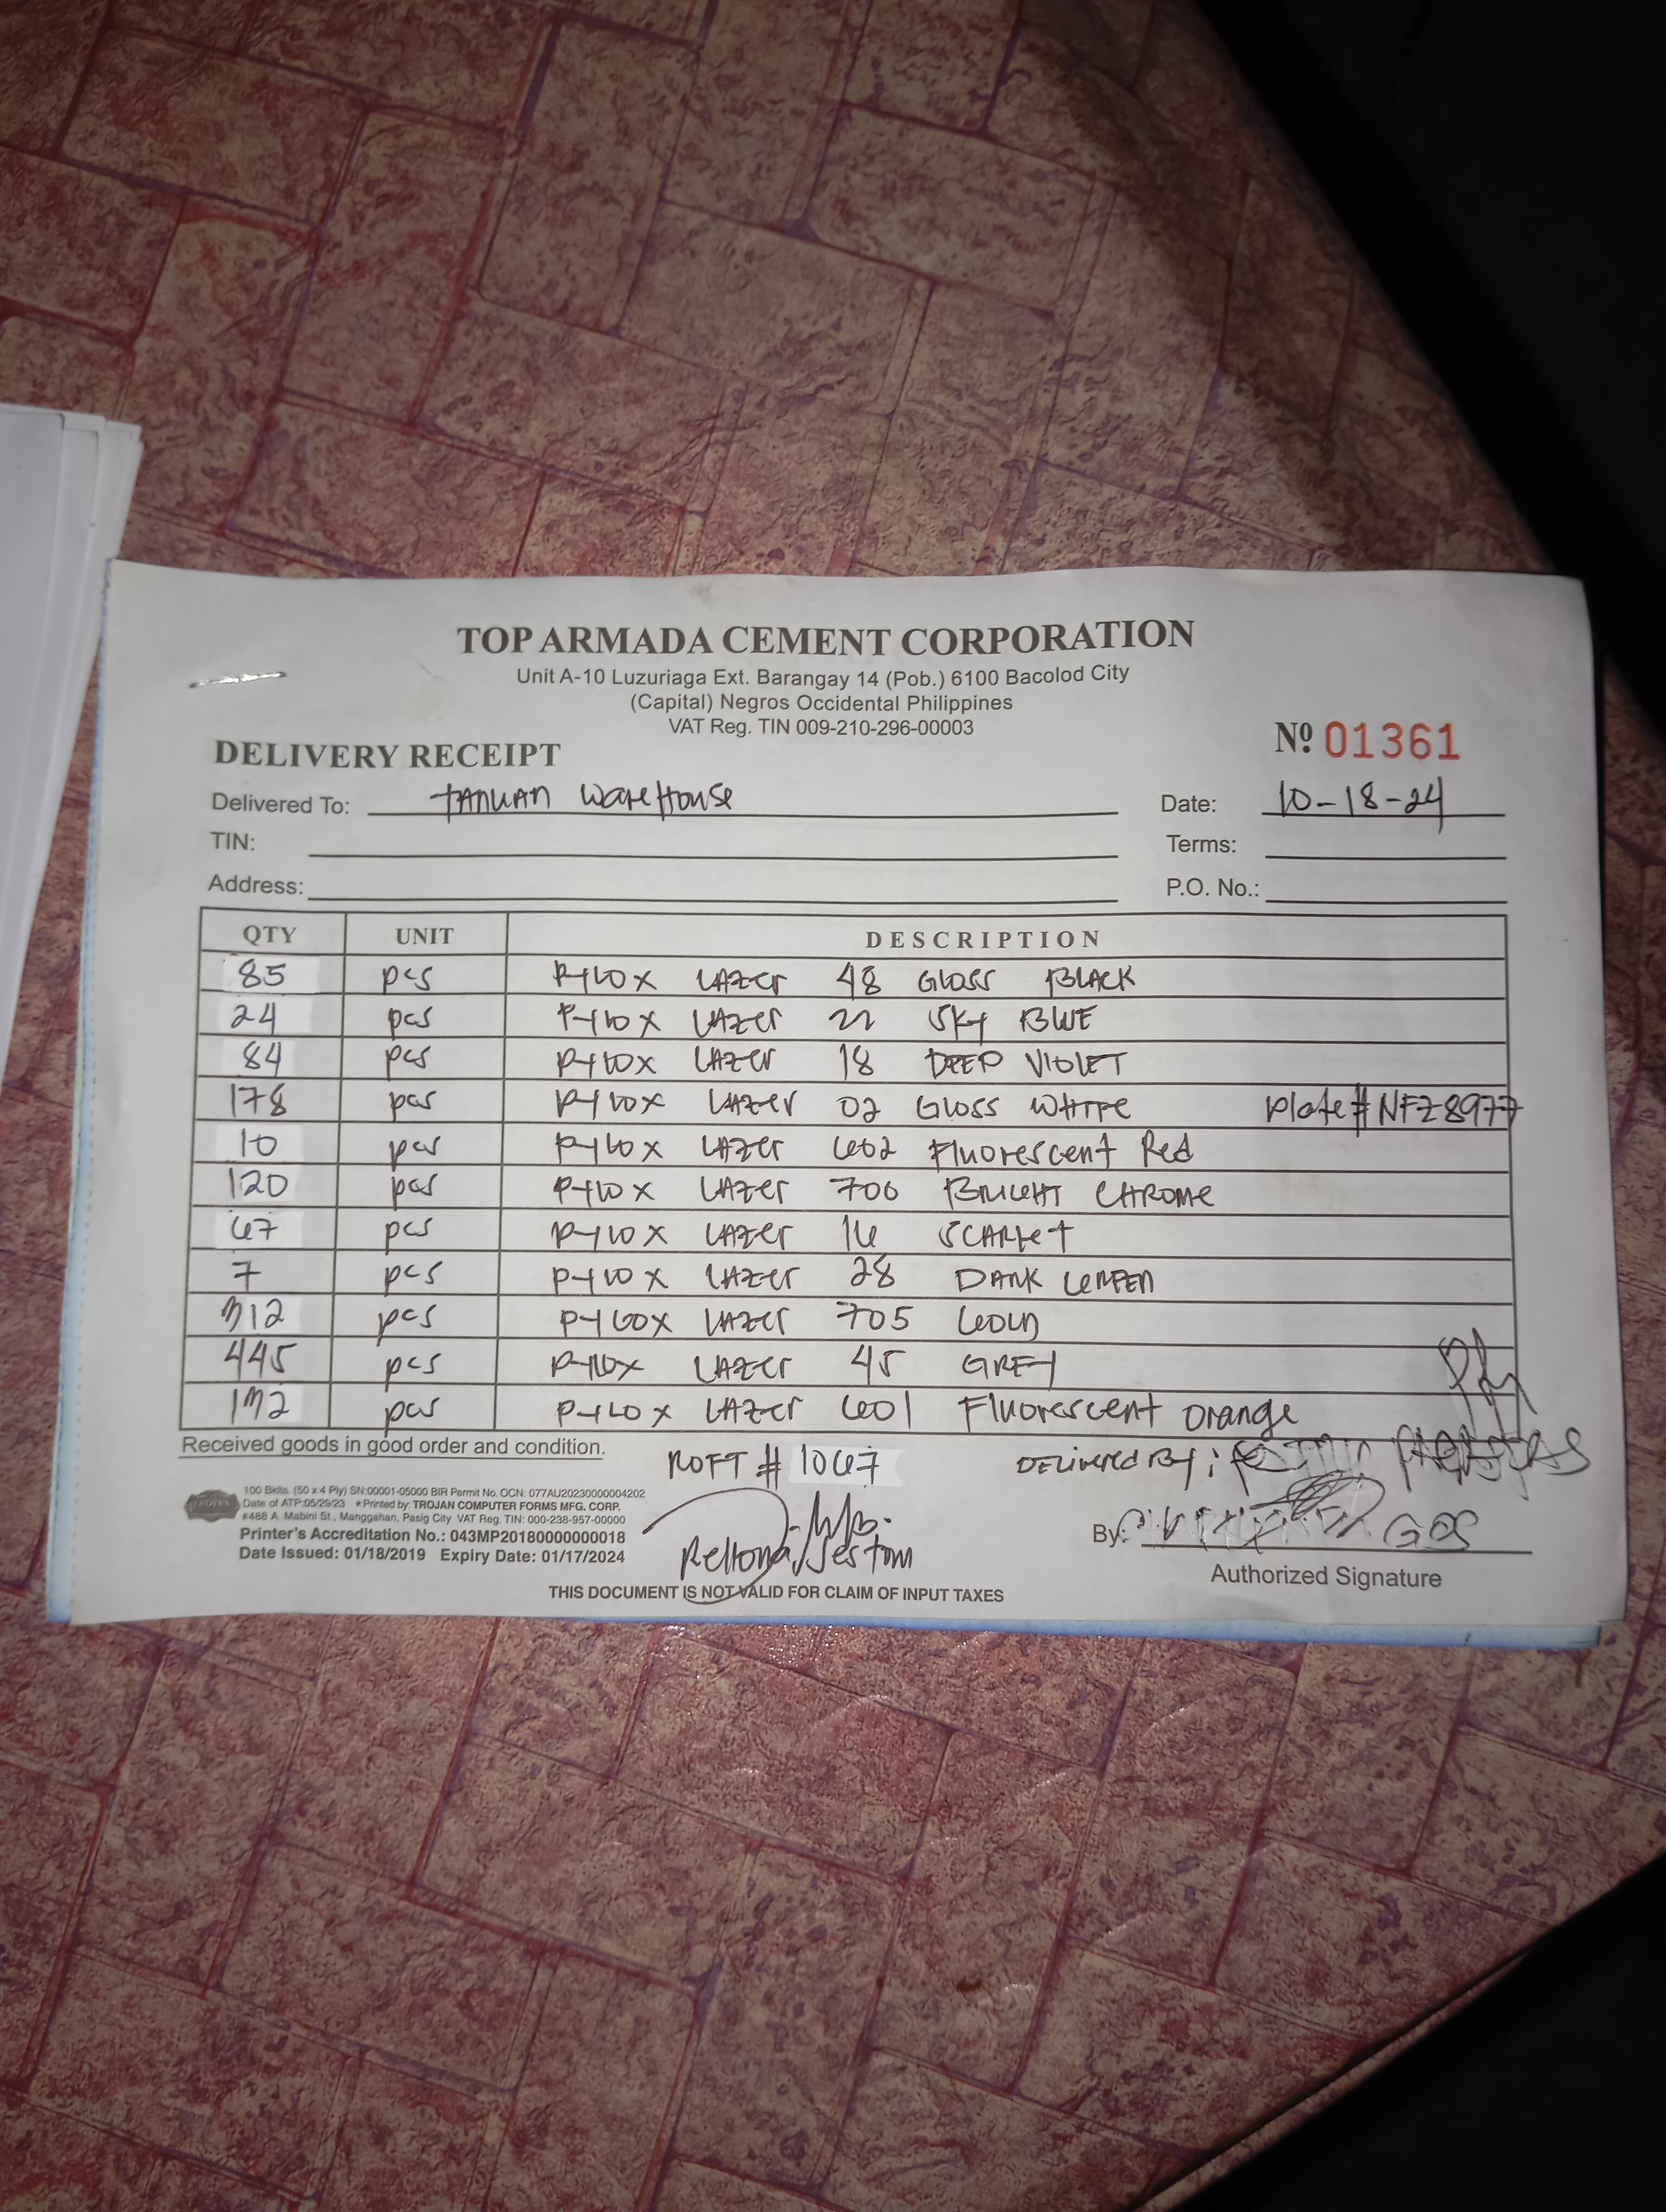 TOP ARMADA CEMENT CORPORATION
Unit A-10 Luzuriaga Ext. Barangay 14 (Pob.) 6100 Bacolod City
(Capital) Negros Occidental Philippines
VAT Reg. TIN 009-210-296-00003
Nº 01361
DELIVERY RECEIPT
Delivered To: TANUAN WareHouse Date: 10-18-24
TIN: Terms:
Address: P.O. No.:
QTY UNIT DESCRIPTION
85 pcs PYLOX LAZER 48 GLOSS BLACK
24 pcs PYLOX LAZER 22 SKY BLUE
84 pcs PYLOX LAZER 18 DEEP VIOLET
178 pcs PYLOX LAZER 02 GLOSS WHITE Plate# NFZ8977
10 pcs PYLOX LAZER 602 Fluorescent Red
120 pcs PYLOX LAZER 700 BRIGHT CHROME
67 pcs PYLOX LAZER 16 SCARLET
7 pcs PYLOX LAZER 28 DARK GREEN
312 pcs PYLOX LAZER 705 GOLD
445 pcs PYLOX LAZER 45 GREY
132 pcs PYLOX LAZER 601 Fluorescent Orange
Received goods in good order and condition.
ROFT # 1067
DELIVERED BY:
100 Bklts. (50 x 4 Ply) SN:00001-05000 BIR Permit No. OCN: 077AU20230000004202
Date of ATP:05/29/23 ★Printed by: TROJAN COMPUTER FORMS MFG. CORP.
#488 A. Mabini St., Manggahan, Pasig City VAT Reg. TIN: 000-238-957-00000
Printer's Accreditation No.: 043MP20180000000018
Date Issued: 01/18/2019 Expiry Date: 01/17/2024
By:
Authorized Signature
THIS DOCUMENT IS NOT VALID FOR CLAIM OF INPUT TAXES